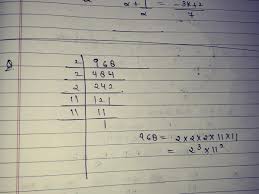 α + 1/α = -3x+2/4
Q
2 | 968
2 | 484
2 | 242
11 | 121
11 | 11
1
968 = 2×2×2×11×11
= 2³×11²